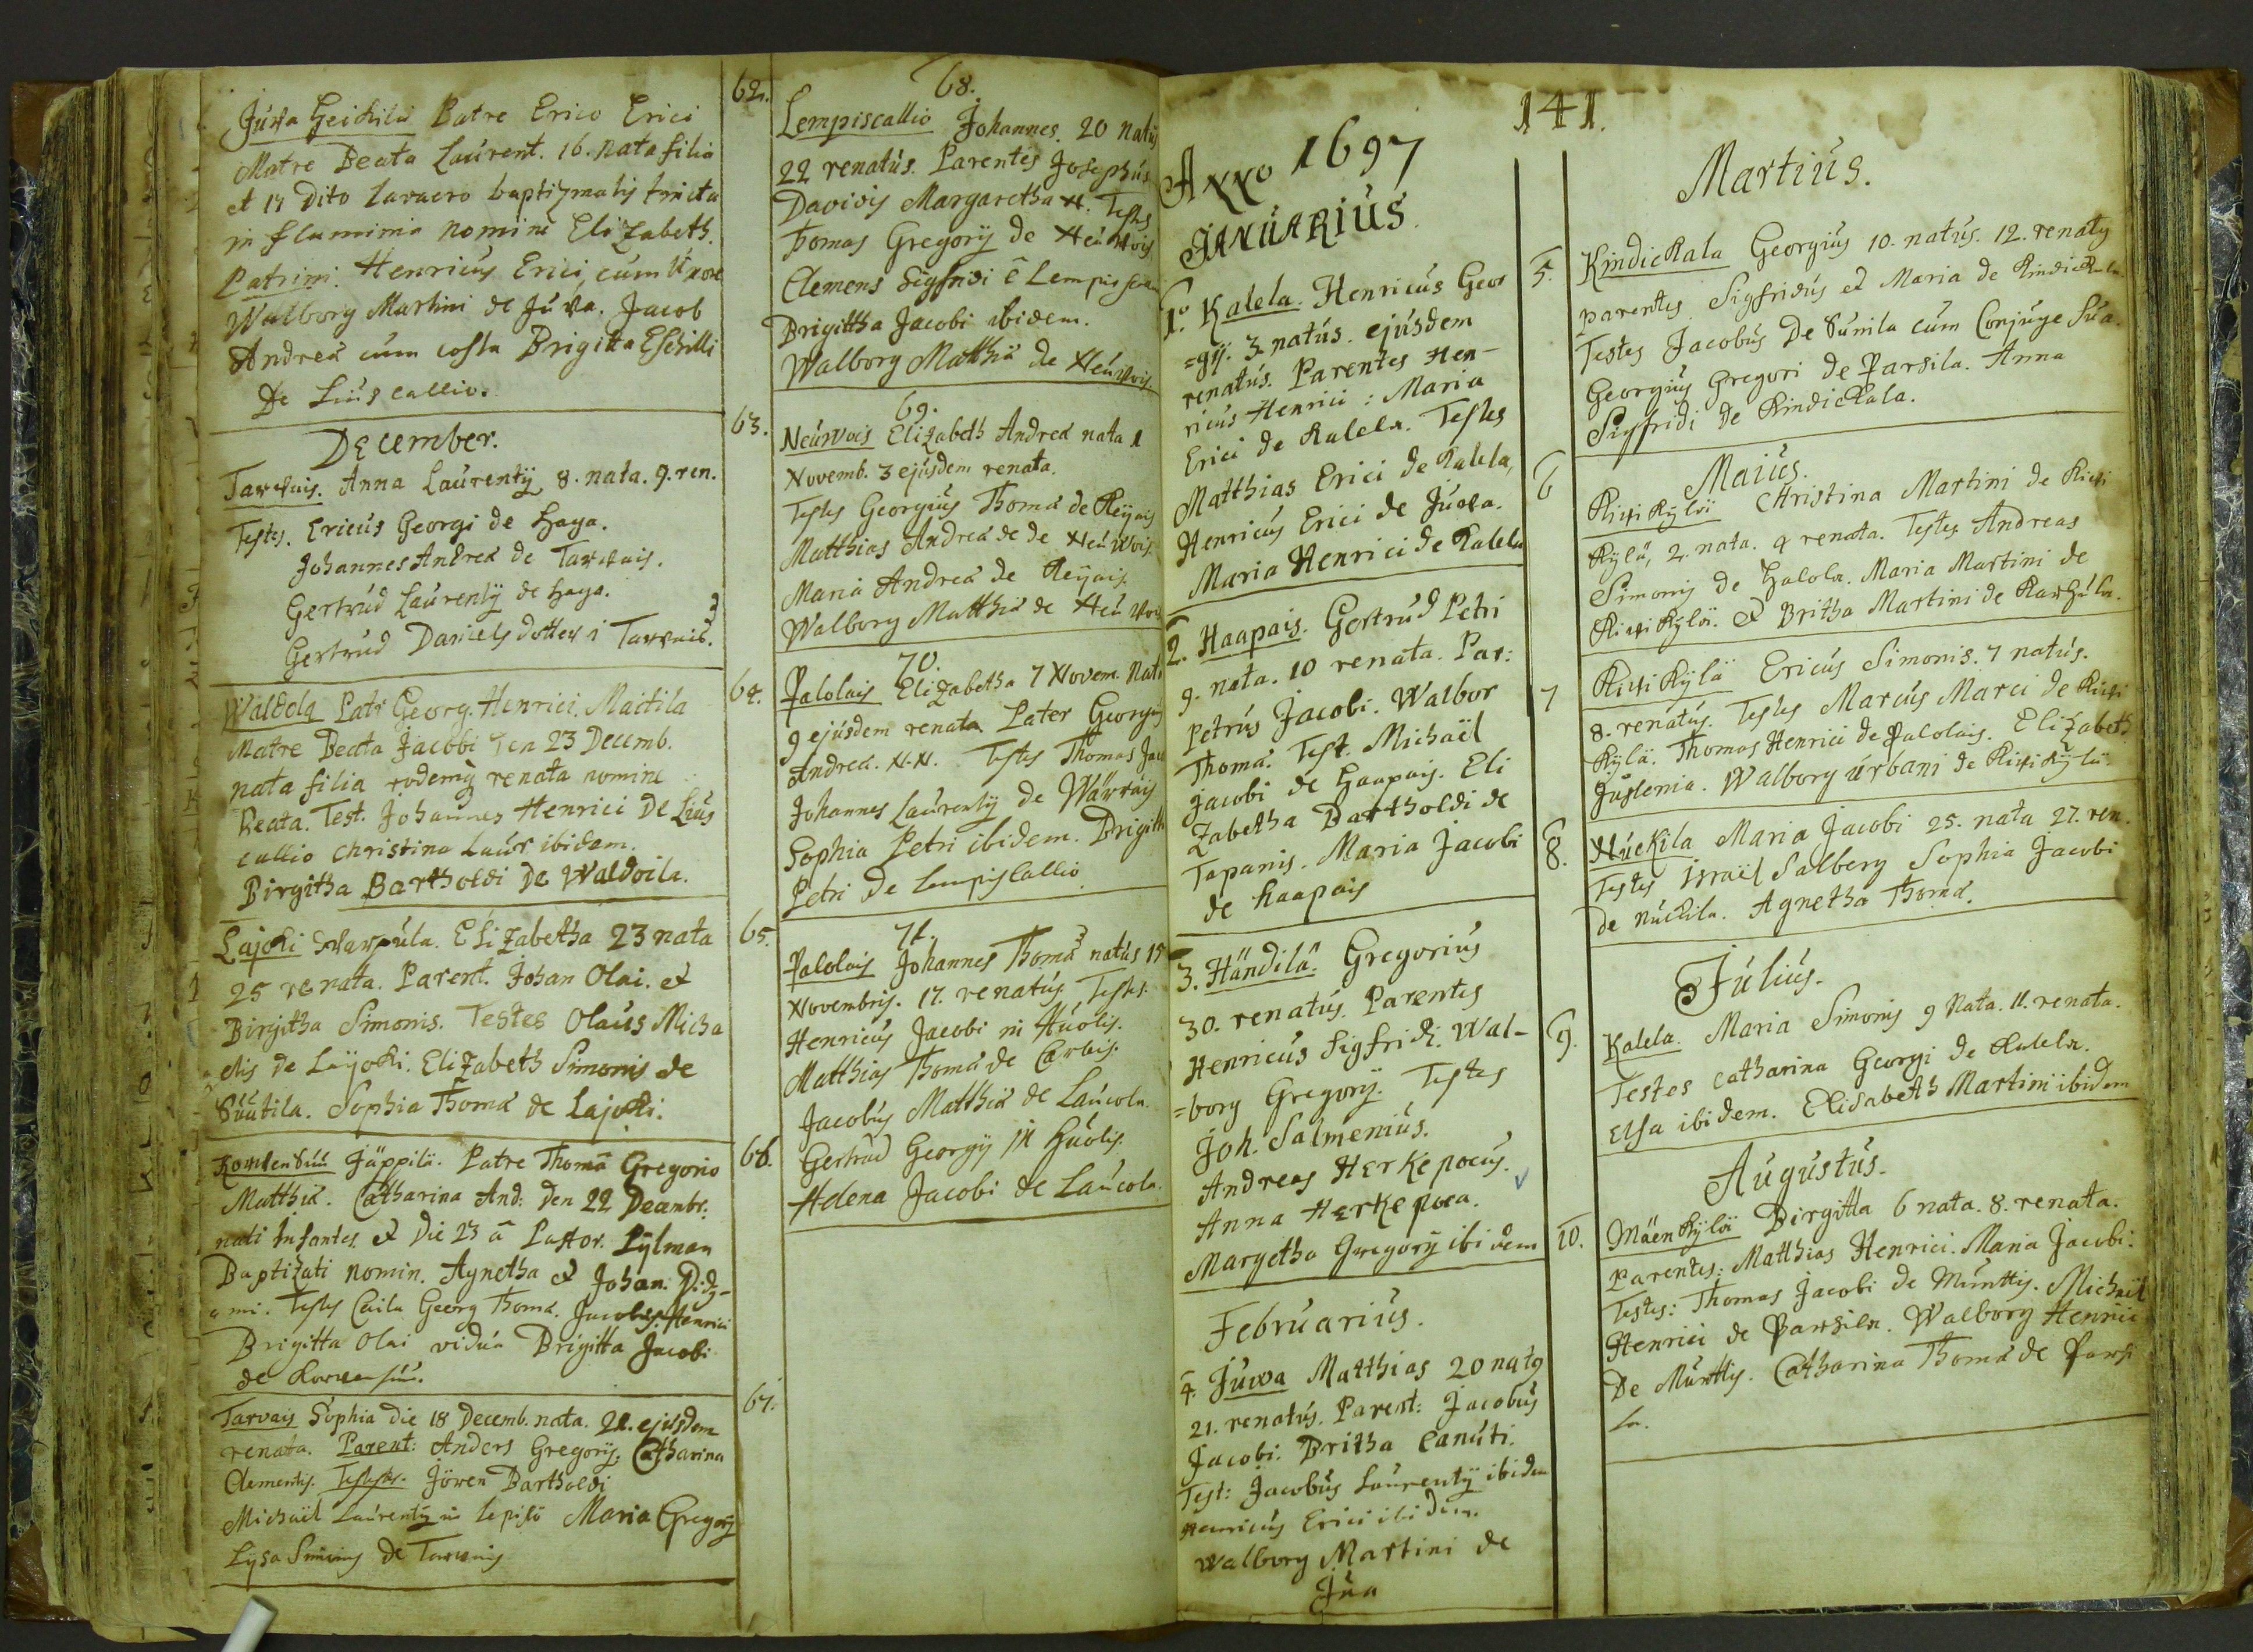 62.
Juva Heickilä Patre Erico Erici
Matre Beata Laurent. 16. Nata filia
et 17 Dito lavacro baptizmatis tincta
in flumina nomine Elizabeth.
Patrini. Henricus Erici cum Uxore
Walborg Martini de Juva. Jacob
Andreæ cum costa Brigitta Eschilli
De Liuscallio.
63.
December.
Tarvais. Anna Laurentij 8. nata. 9. ren.
Testes. Ericus Georgi de Haga.
Johannes Andreæ de Tarvais.
Gertrud Laurentij de Haga.
Gertrud Daniels dotter i Tarvais.
64.
Waldola Patr Georg. Henrici. Mactila
Matre Beata Jacobi Den 23 Decemb.
nata filia eodemq renata nomine
Beata. Test. Johannes Henrici De Lius
callio Christina Laur ibidem.
Birgitha Bartholdi De Waldoila.
65.
Lajoki Warpula. Elizabetha 23 nata
25 renata. Parent. Johan Olai. et
Birgitha Simonis. Testes Olaus Micha
elis de Laijoki. Elizabeth Simonis de
Suutila. Sophia Thomæ de Lajoki.
66.
Korvensuu Jäppilä. Patre Thoma Gregorio
Matthiæ. Catharina And: Den 22 Decembr.
nati Infantes et Die 23 a Pastor. Pylman
Baptizati nomin. Agnetha et Johan. Didy-
mi. Testes Caila Georg Thomæ. Jacobus Henrici
Brigitta Olai vidua Brigitta Jacobi
de Korvensuu.
67.
Tarvais Sophia Die 18 Decemb. nata. 21. ejusdem
renata. Parent: Anders Gregorij. Catharina
Clementis. Testes. Jören Bartholdi
Michaël Laurentij in Lepistö Maria Gregorij
Lijsa Simonis de Tarvais
68.
Lempiscallio Johannes. 20 natus
22 renatus. Parentes Josephus
Davidis Margaretha N. Testes
Thomas Gregorij de Neuvois
Clemens Sigfridi è Lempiscal
Brigittha Jacobi ibidem.
Walborg Matthiæ de Neuvois.
69.
Neuvois Elizabeth Andreæ nata 1
Novemb. 3 ejusdem renata.
Testes Georgius Thomæ de Reijais
Matthias Andreæ de de Neuvois.
Maria Andreæ de Reijais.
Walborg Matthiæ de Neuvois
70.
Palolais Elizabetha 7 Novem. Nata
9 ejusdem renata Pater Georgius
Andreæ. N.N. Testes Thomas Jaco
Johannes Laurentij de Wärvais
Sophia Petri ibidem. Brigitha
Petri de Lempiscallio.
71.
Palolais Johannes Thomæ natus 15
Novembris. 17. renatus. Testes.
Henricus Jacobi in Huolis.
Matthias Thomæ de Carbis.
Jacobus Matthiæ de Laucola.
Gertrud Georgij in Huolis.
Helena Jacobi de Laucola.
141.
Anno 1697
JANUARIUS.
1. Kalela. Henricus Geor
=gij. 3 natus. ejusdem
renatus. Parentes Hen-
ricus Henrici: Maria
Erici de Kalela. Testes
Matthias Erici de Kalela,
Henricus Erici de Juva.
Maria Henrici de Kalela
2. Haapais. Gertrud Petri
9. nata. 10 renata. Par:
Petrus Jacobi. Walbor
Thomæ. Test. Michaël
Jacobi de Haapais. Eli
zabetha Bartholdi de
Tapanis. Maria Jacobi
de Haapais
3. Händilä. Gregorius
30. renatus. Parentes
Henricus Sigfridi. Wal-
=borg Gregorij. Testes
Joh. Salmenius.
Andreas Herkepoeus.
Anna Herkepoea.
Margetha Gregorij ibidem
Februarius.
4. Juwa Matthias 20 natq
21. renatus. Parent: Jacobus
Jacobi: Britha Canuti.
Test: Jacobus Laurentij ibidem
Henricus Erici ibidem.
Walborg Martini de
Jua
Martius.
5. Kindickala Georgius 10. natus. 12. renatq
parentes Sigfridus et Maria de Kindickala.
Testes Jacobus De Sunila cum Conjuge Sua.
Georgius Gregori de Parsila. Anna
Sigfridi de Kindickala.
Maius.
6 Kivikylä Christina Martini de Kivi
kylä, 2. nata. 4 renata. Testes Andreas
Simonis de Halola. Maria Martini de
Kivikylä. et Britha Martini de Karhula.
7 Kivikylä Ericus Simonis. 7 natus.
8. renatus. Testes Marcus Marci de Kivi
kylä. Thomas Henrici de Palolais. Elizabeth
Juslenia. Walborg Urbani de Kivikylä.
8. Nuckila Maria Jacobi 25. nata 27. ren.
Testes Israël Salberg Sophia Jacobi
de Nuckila. Agnetha Thomæ.
Julius.
9. Kalela. Maria Simonis 9 Nata. 11. renata.
Testes Catharina Georgi de Kalela.
Elsa ibidem. Elisabeth Martini ibidem
Augustus.
10. Mäenkylä Birgitta 6 nata. 8. renata.
Parentes: Matthias Henrici. Maria Jacobi.
Testes: Thomas Jacobi de Munttis. Michaël
Henrici de Parsila. Walborg Henrici
De Munttis. Catharina Thomæ de Parsi
la.